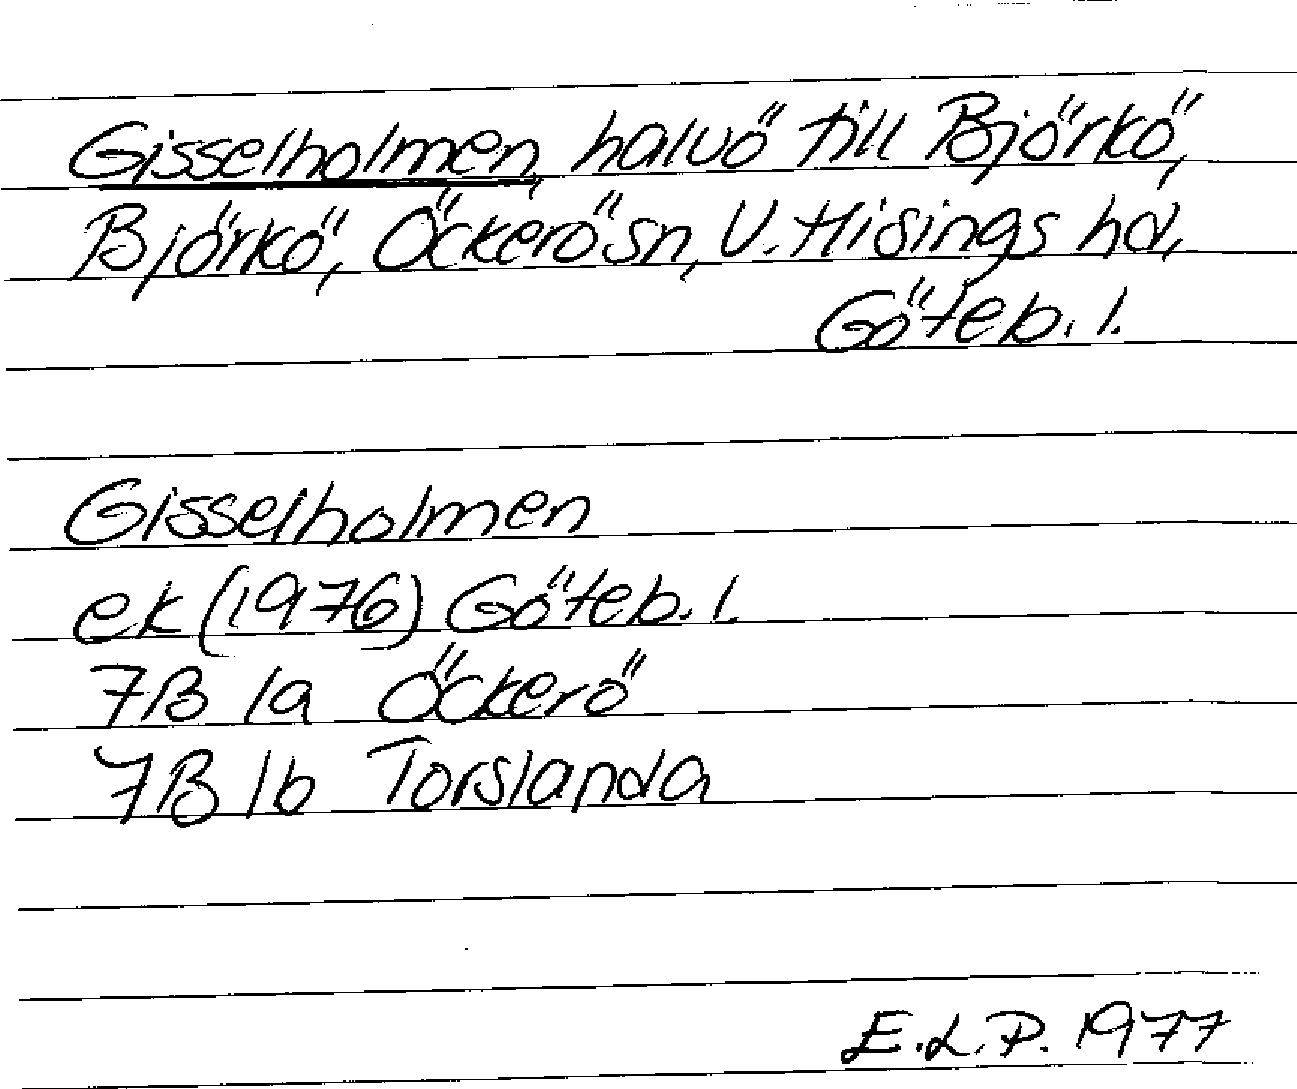 Gisselholmen, halvö till Björkö,
Björkö, Öckerö sn, V. Hisings hd,
Göteb. l.
Gisselholmen
ek (1976) Göteb. l.
7B 1a Öckerö
7B 1b Torslanda
E.L.P. 1977